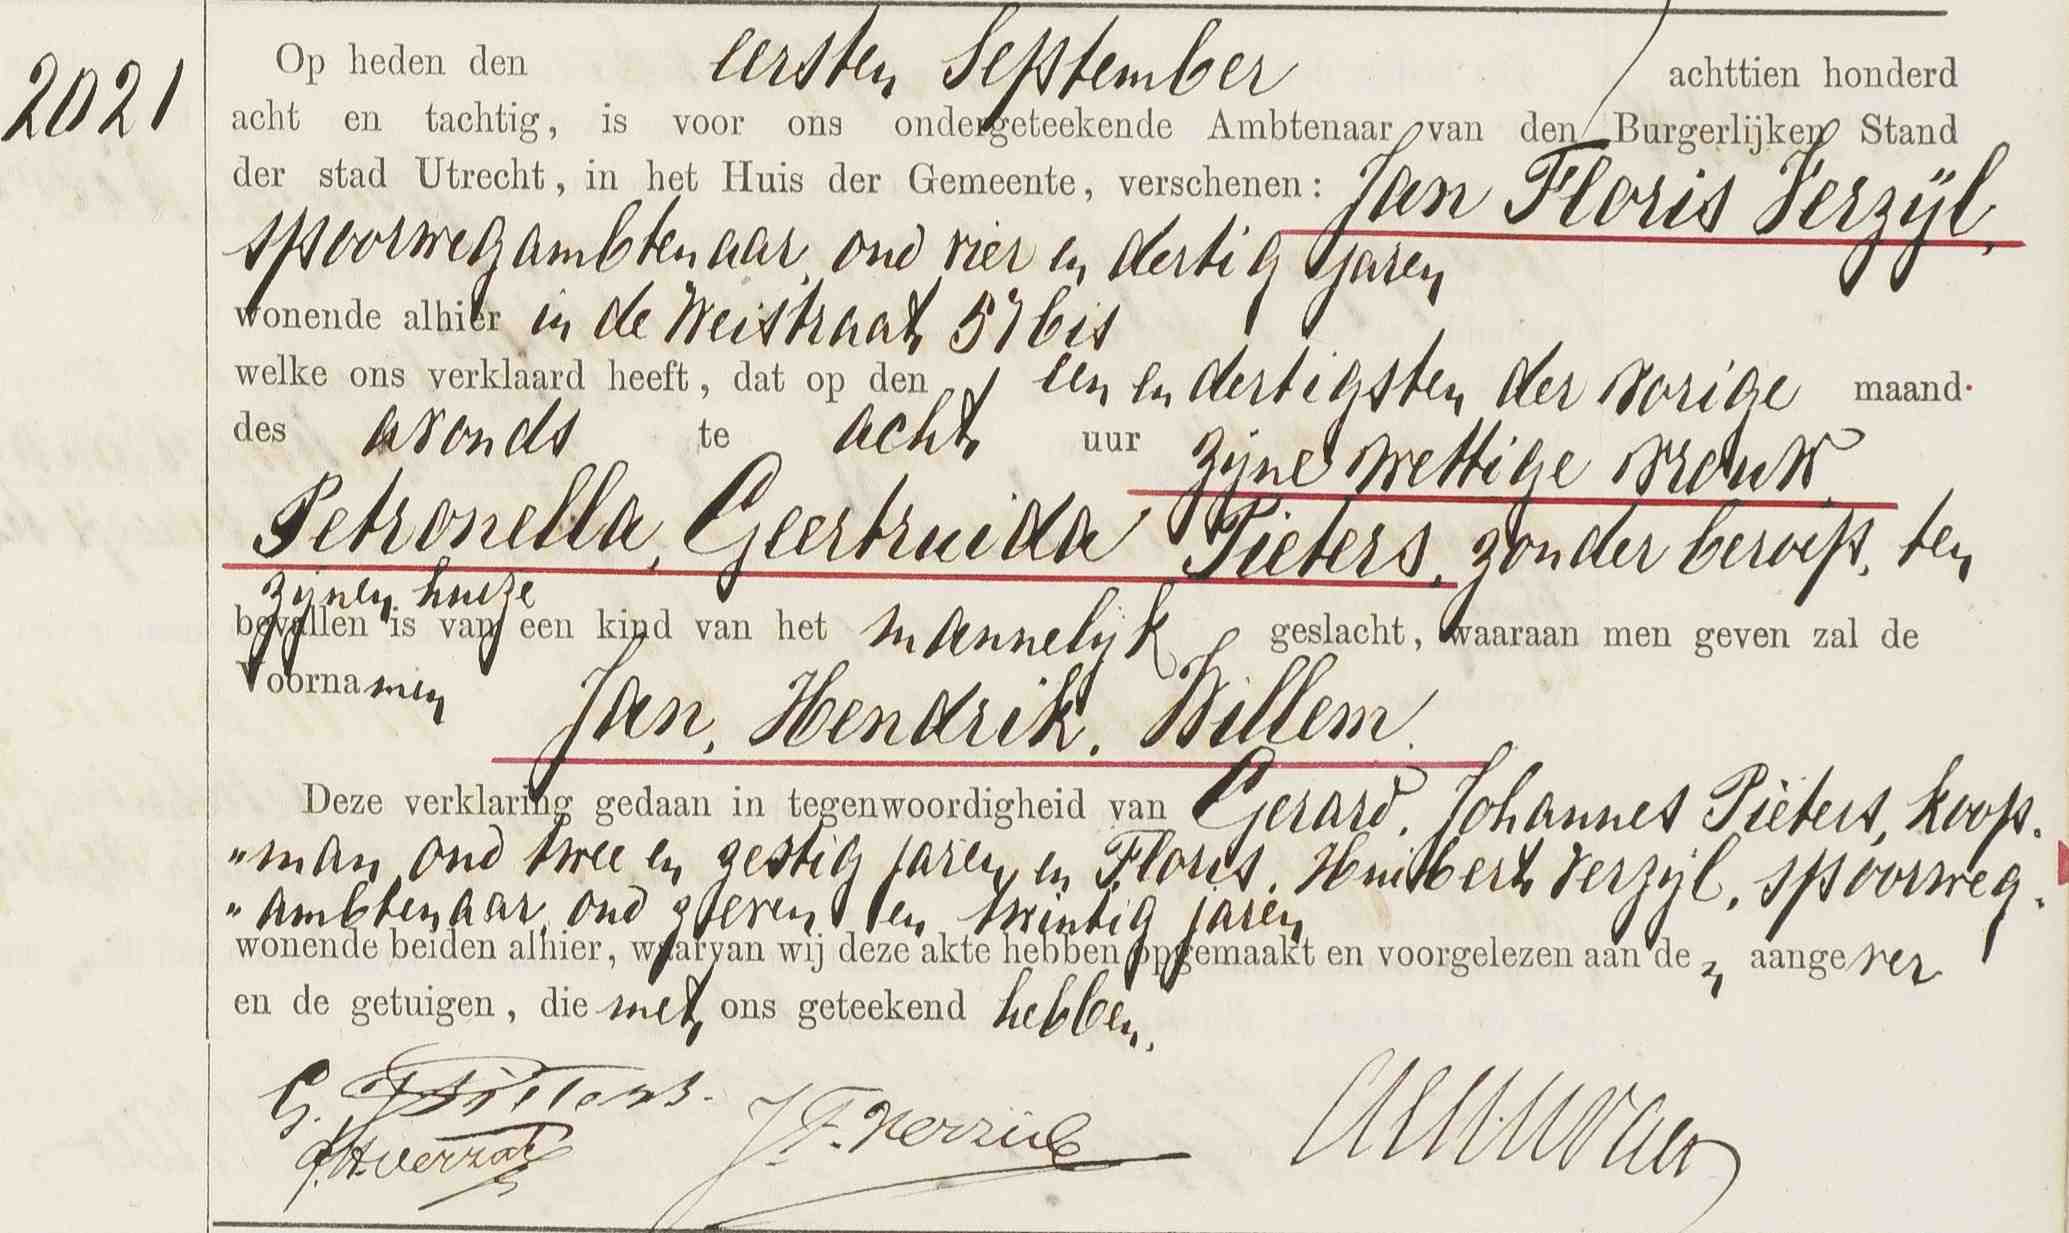 2021
Op heden den eersten September achttien honderd
acht en tachtig, is voor ons ondergeteekende Ambtenaar van den Burgerlijken Stand
der stad Utrecht, in het Huis der Gemeente, verschenen: Jan Floris Verzijl,
spoorwegambtenaar, oud vier en dertig jaren
wonende alhier in de Weistraat 57 bis
welke ons verklaard heeft, dat op den een en dertigsten der vorige maand
des avonds te acht uur zijne wettige vrouw
Petronella, Geertruida Pieters, zonder beroep, ten
zijnen huize
bevallen is van een kind van het mannelijk geslacht, waaraan men geven zal de
Voornamen Jan, Hendrik, Willem.
Deze verklaring gedaan in tegenwoordigheid van Gerard, Johannes Pieters, koop-
"man oud twee en zestig jaren, en Floris, Huibert Verzijl, spoorweg-
"ambtenaar, oud zeven en twintig jaren
wonende beiden alhier, waarvan wij deze akte hebben opgemaakt en voorgelezen aan den aangever
en de getuigen, die met ons geteekend hebben.
G. J. Pieters.
F. H. Verzijl J. F. Verzijl